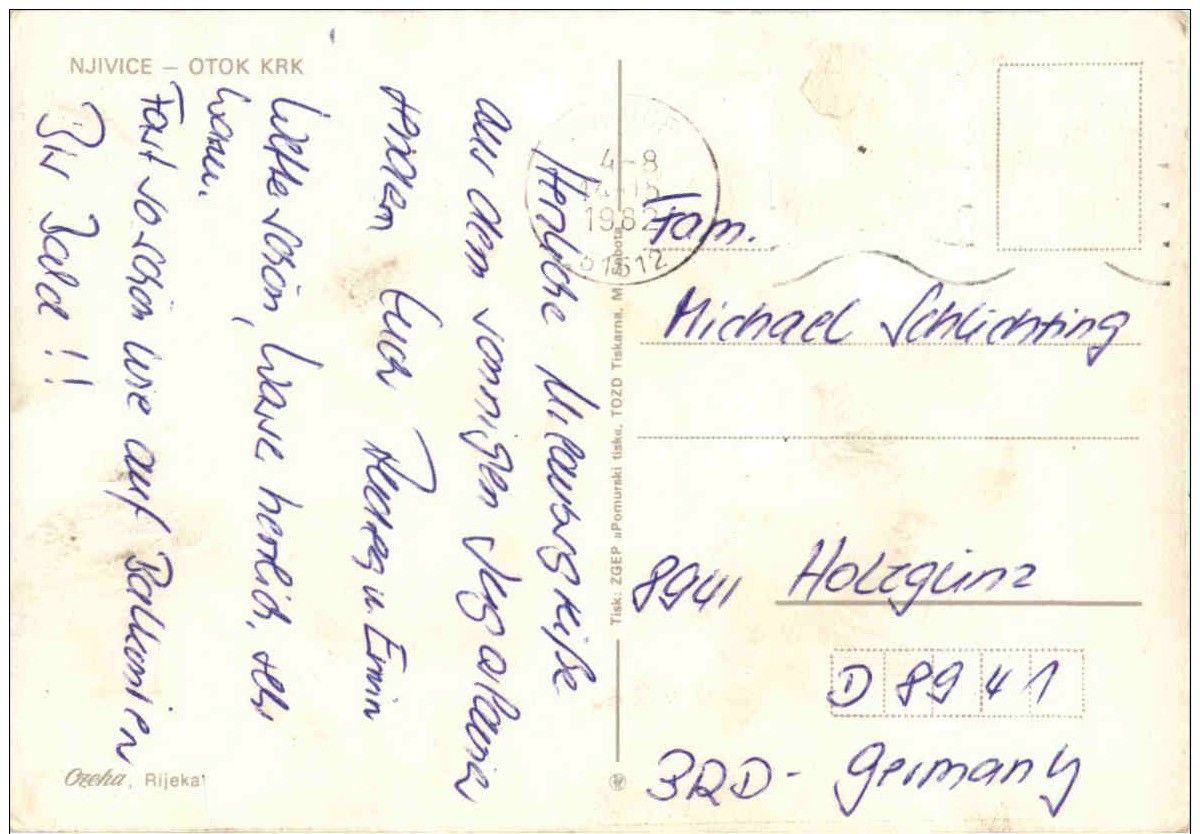 NJIVICE – OTOK KRK
Herzliche Urlaubsgrüße
aus dem sonnigen Jugoslawien
senden Euch u. Erwin
Wetter schön, Wasser herrlich, sehr
warm.
Fast so schön wie auf Balkonien
Bis Bald !!
Ozeha, Rijeka
Tisk: ZGEP »Pomurski tisk«, TOZD Tiskarna, M. Sobota
4-8
1982
51512
Fam.
Michael Schlichting
8941 Holzgünz
D 8941
BRD - Germany